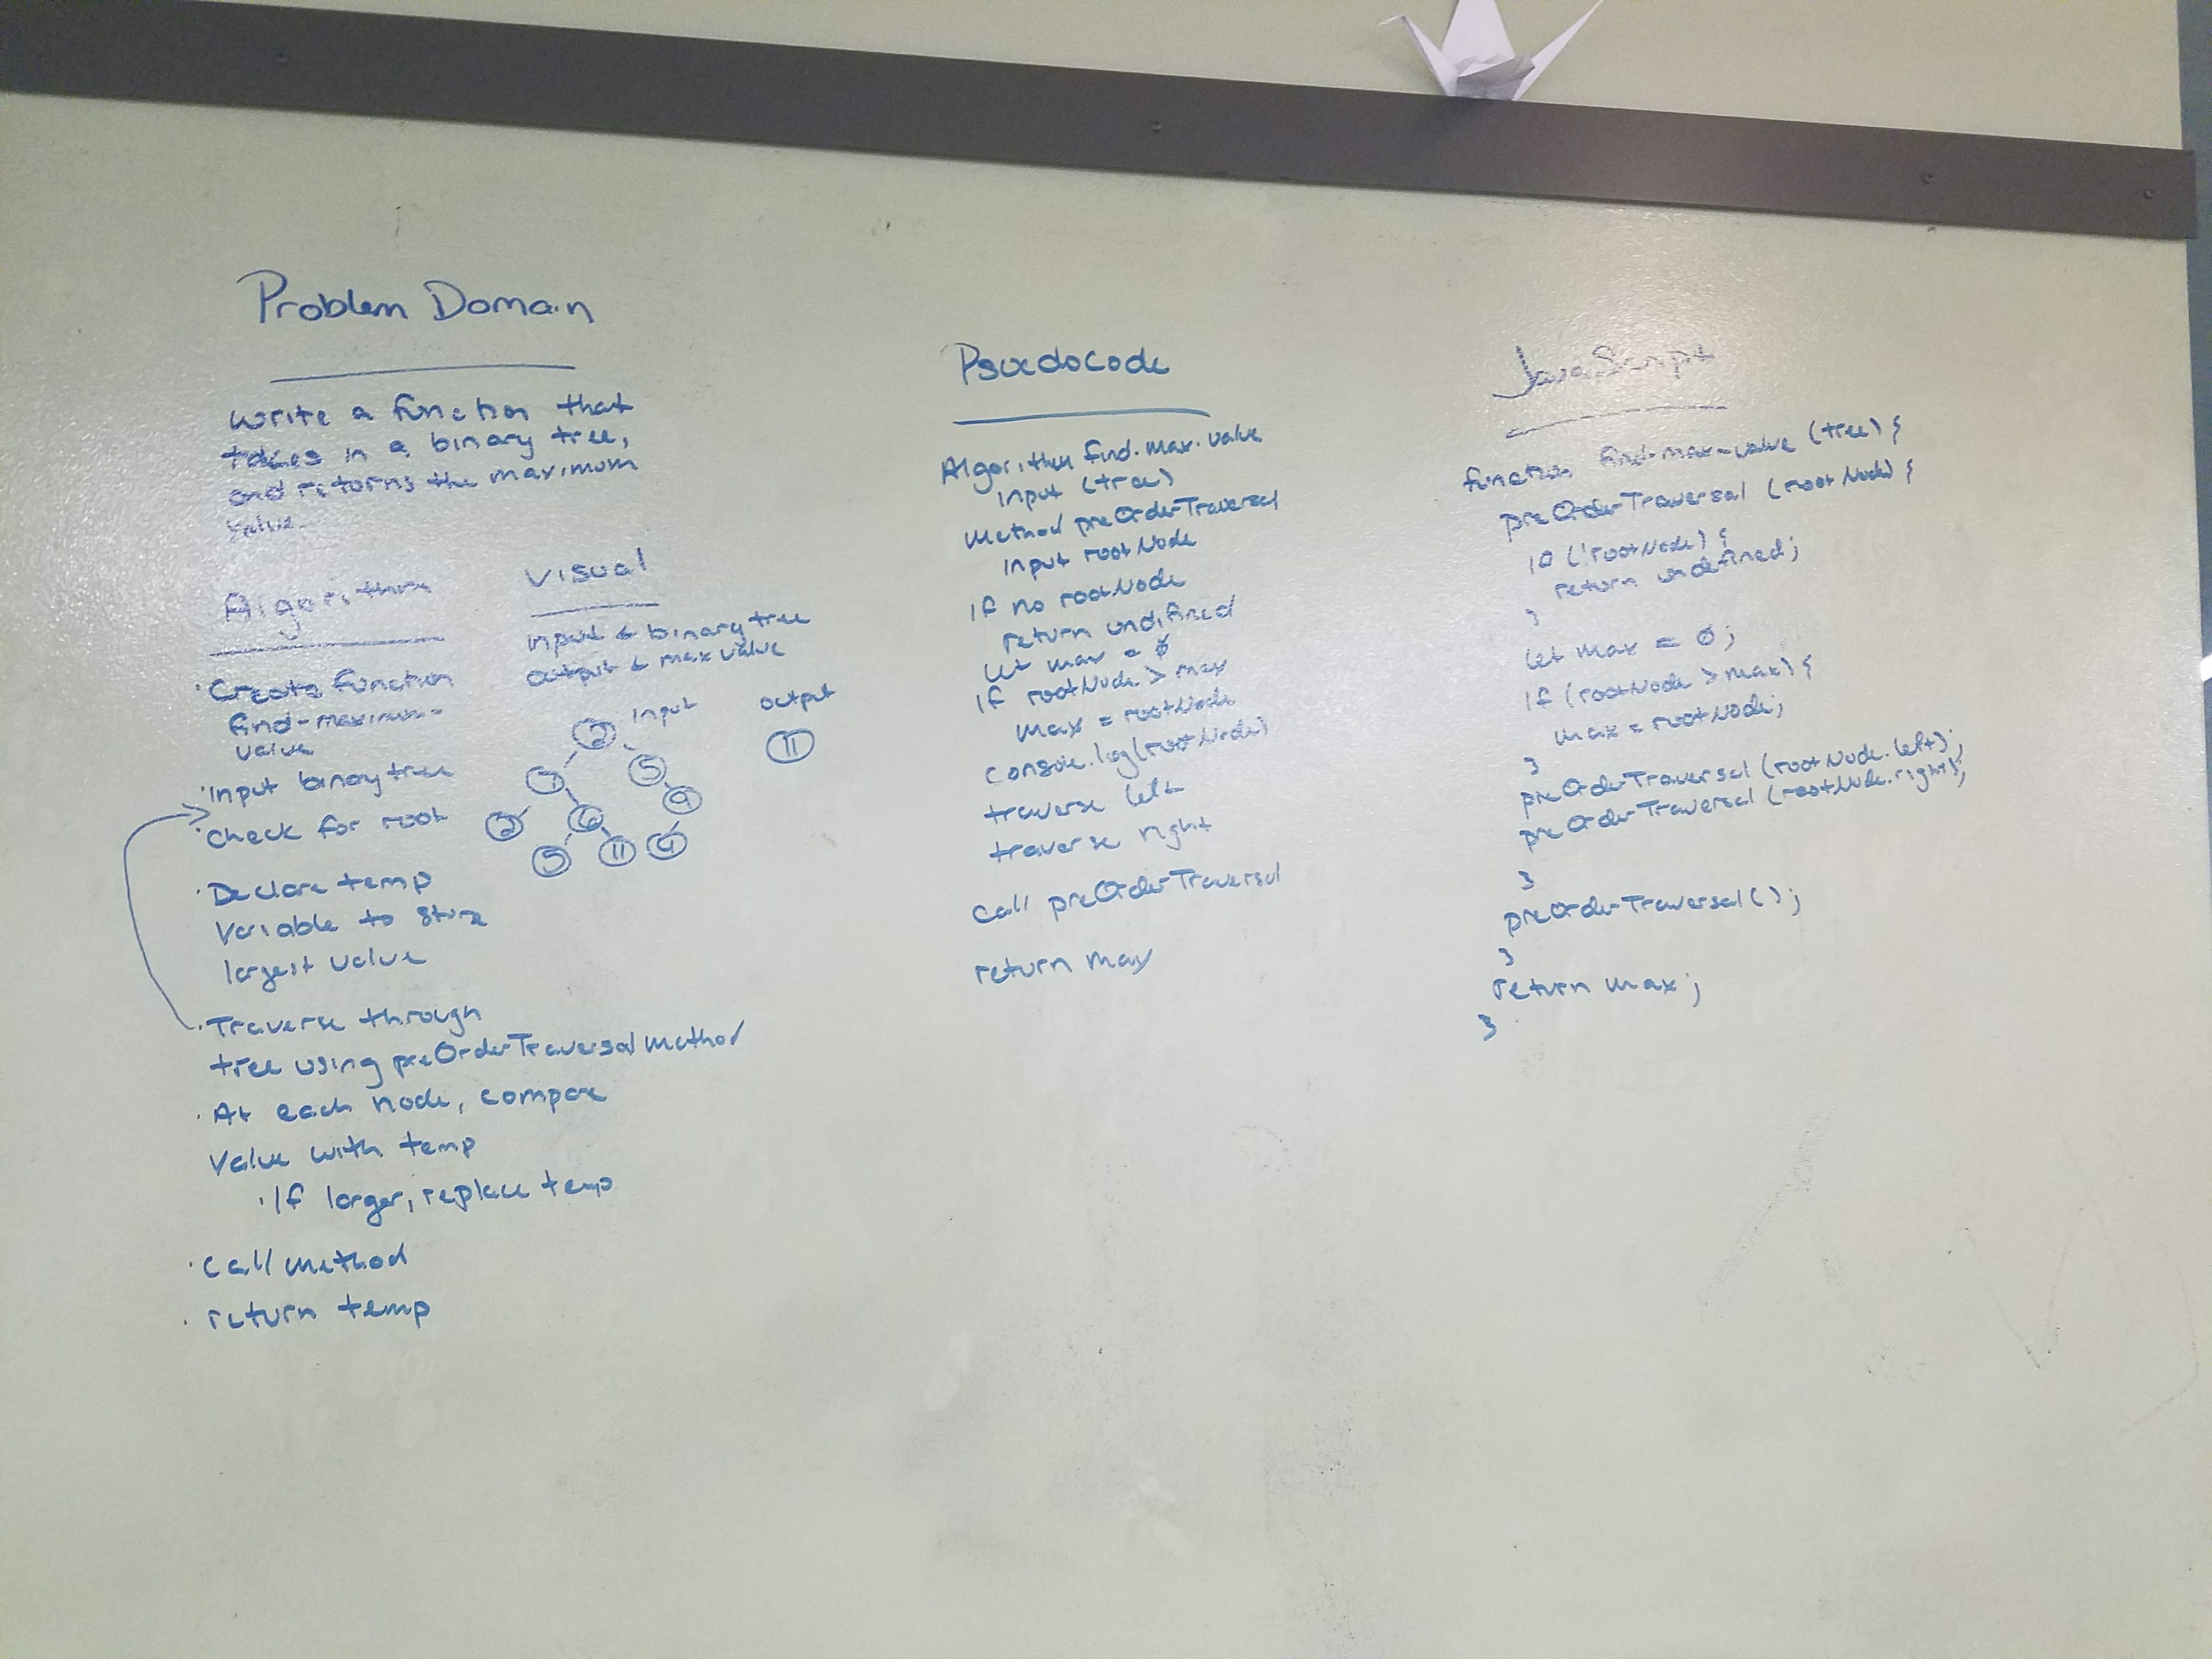 Problem Domain
write a function that
takes in a binary tree,
and returns the maximum
value.
Algorithm
· Create function
find-maximum-
value
· Input binary tree
· check for root
· Declare temp
variable to store
largest value
· Traverse through
tree using preOrderTraversal method
· At each node, compare
value with temp
· If larger, replace temp
· call method
· return temp
Visual
input ← binary tree
output ← max value
input output
2 11
7 5
2 6 9
5 11 4
Psuedocode
Algorithm find-max-value
input (tree)
Method preOrderTraversal
input rootNode
if no rootNode
return undifined
let max = 0
if rootNode > max
max = rootNode
console.log(rootNode)
traverse left
traverse right
call preOrderTraversal
return max
JavaScript
function find-max-value (tree) {
preOrderTraversal (rootNode) {
if (!rootNode) {
return undefined;
}
let max = 0;
if (rootNode > max) {
max = rootNode;
}
preOrderTraversal (rootNode.left);
preOrderTraversal (rootNode.right);
}
preOrderTraversal ();
}
return max;
}